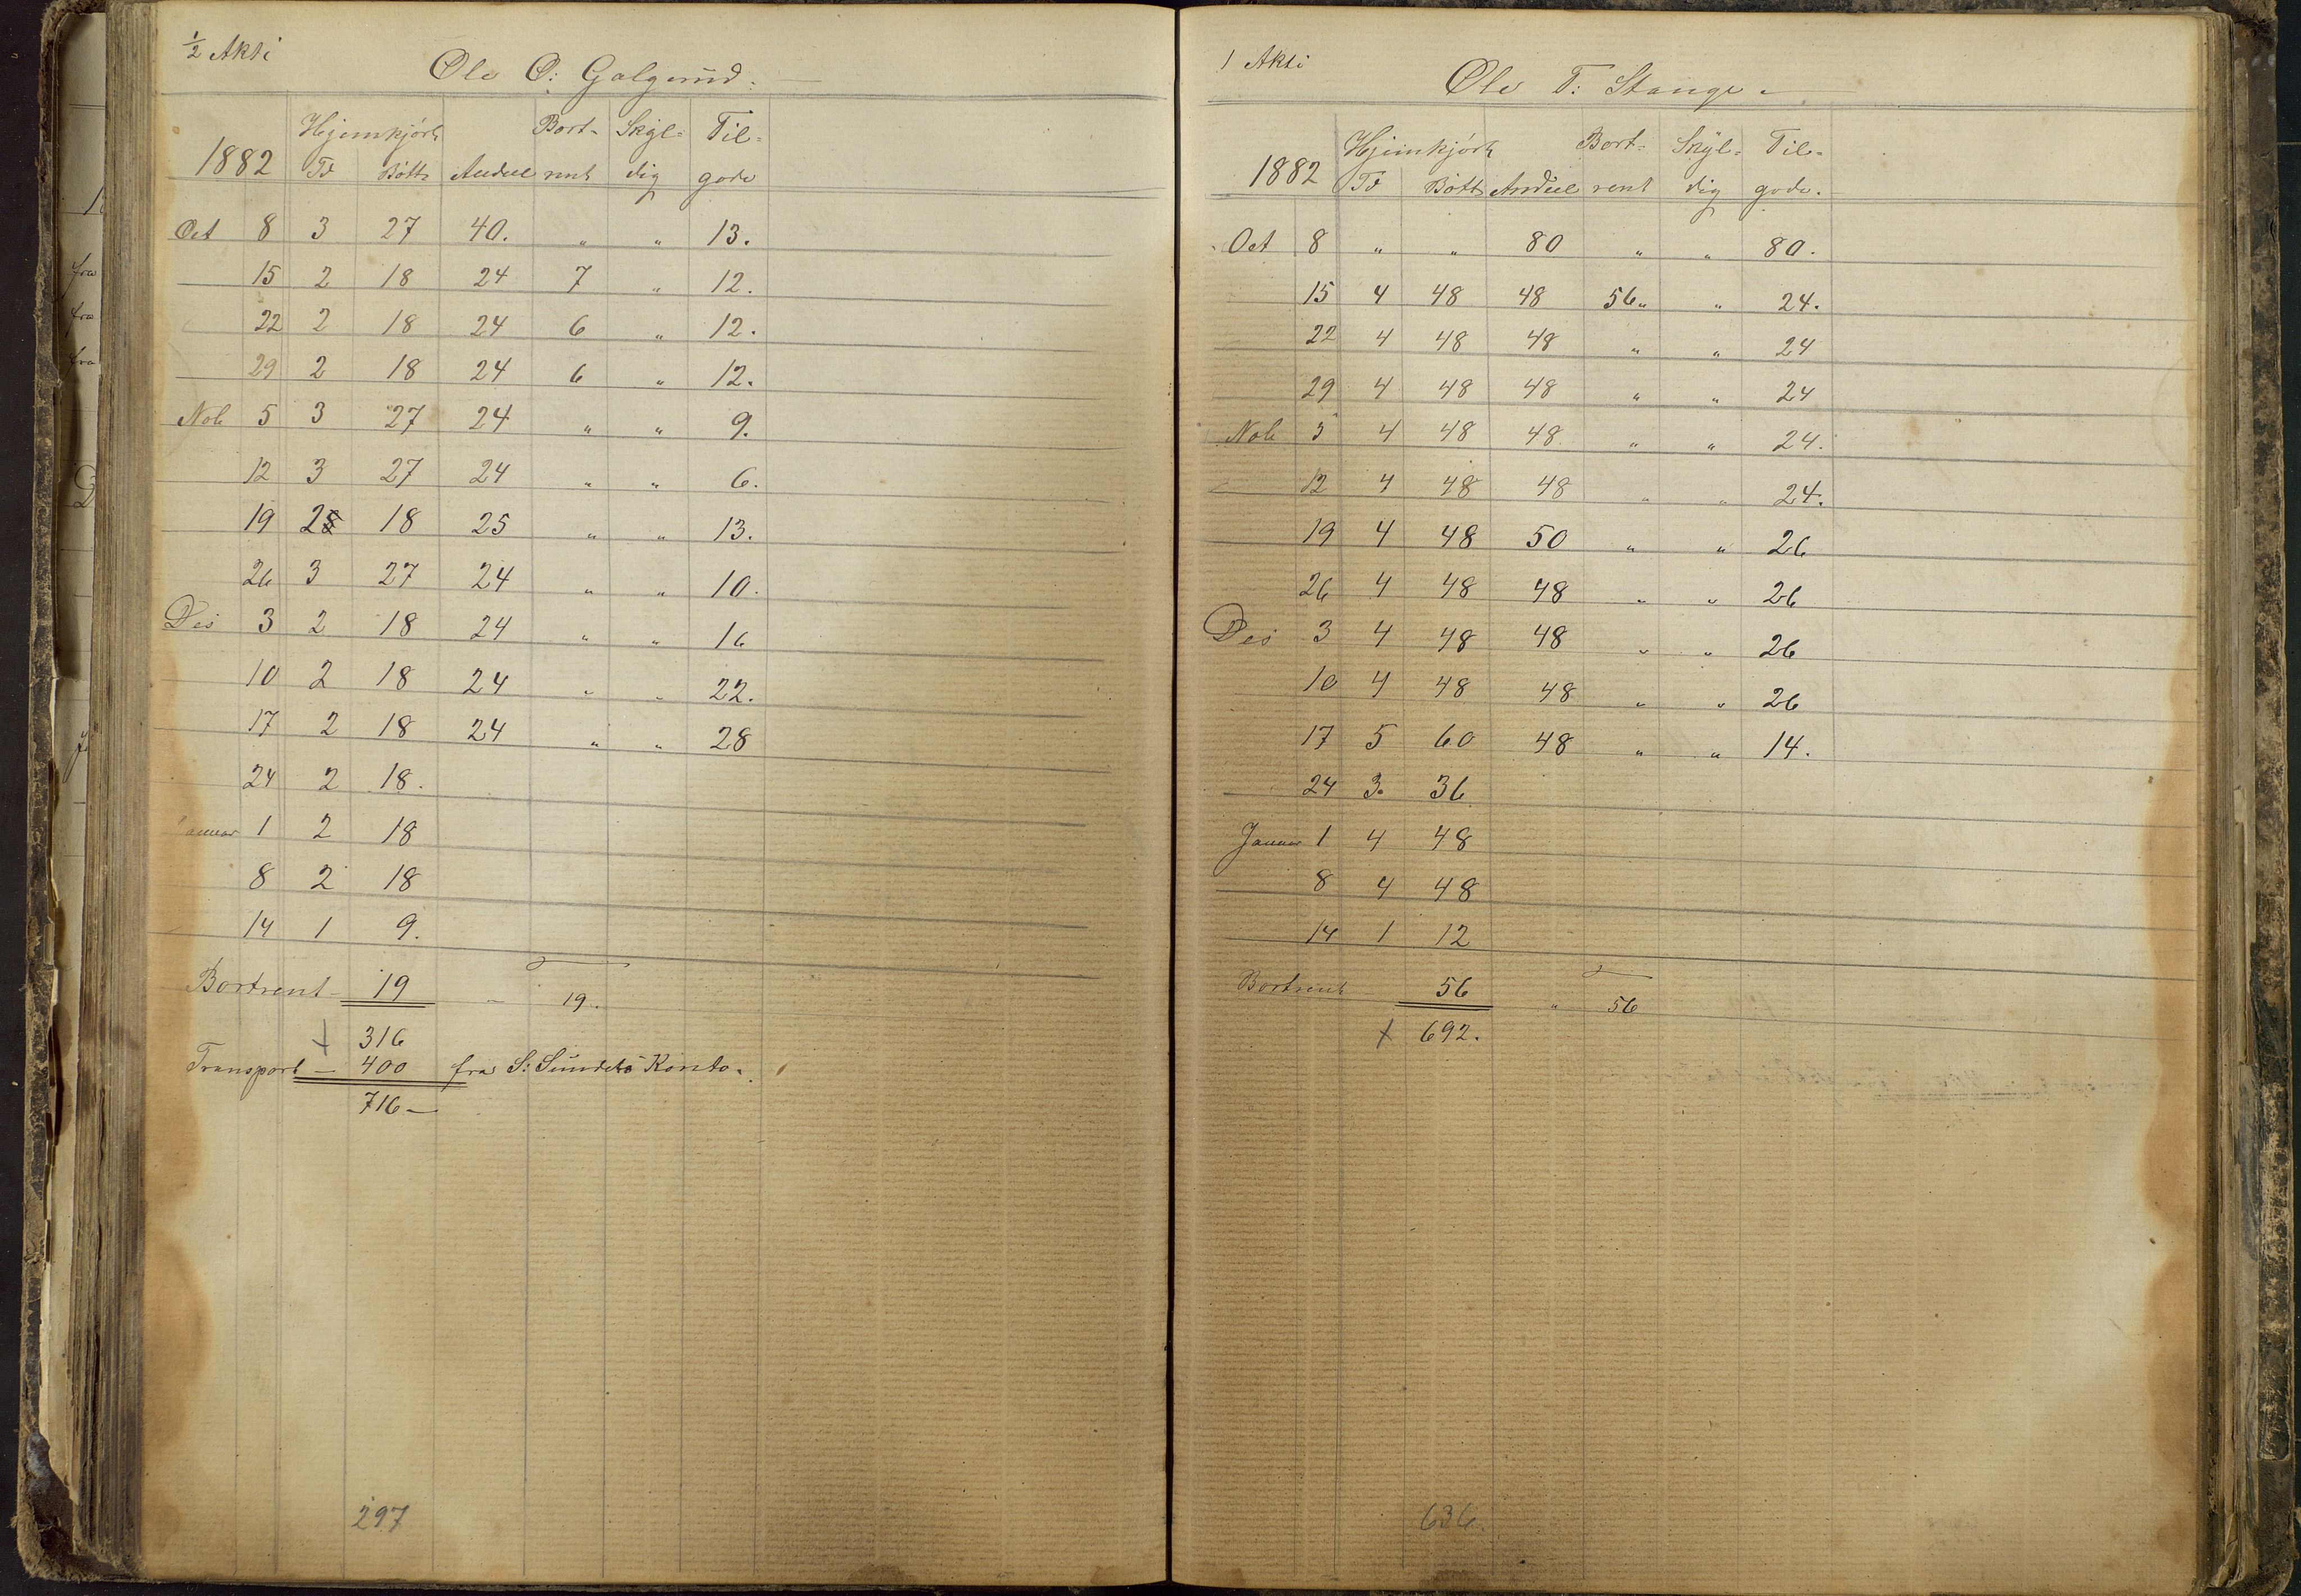 ½ Akti
Ole O: Galgerud.
Hjemkjørt Bort- Skyl- Til-
1882 Td Bøtt Andeel rent dig gode
Oct 8 3 27 40. " " 13.
15 2 18 24 7 " 12.
22 2 18 24 6 " 12.
29 2 18 24 6 " 12.
Nob 5 3 27 24 " " 9.
12 3 27 24 " " 6.
19 2 18 25 " " 13.
26 3 27 24 " " 10.
Des 3 2 18 24 " " 16
10 2 18 24 " " 22.
17 2 18 24 " " 28
24 2 18.
Januar 1 2 18
8 2 18
14 1 9.
Bortrent - 19 - 19.
+ 316
Transport - 400 fra S: Sundets Konto.
716 -
297
1 Akti
Ole T: Stange
Hjemkjørt Bort- Skyl- Til-
1882 Td Bøtt Andeel rent dig gode.
Oct 8 " " 80 " " 80.
15 4 48 48 56 " " 24.
22 4 48 48 " " 24
29 4 48 48 " " 24
Nob 5 4 48 48 " " 24.
12 4 48 48 " " 24.
19 4 48 50 " " 26
26 4 48 48 " " 26
Des 3 4 48 48 " " 26
10 4 48 48 " " 26
17 5 60 48 " " 14.
24 3. 36
Januar 1 4 48
8 4 48
14 1 12
Bortrent 56 " 56
+ 692.
636.